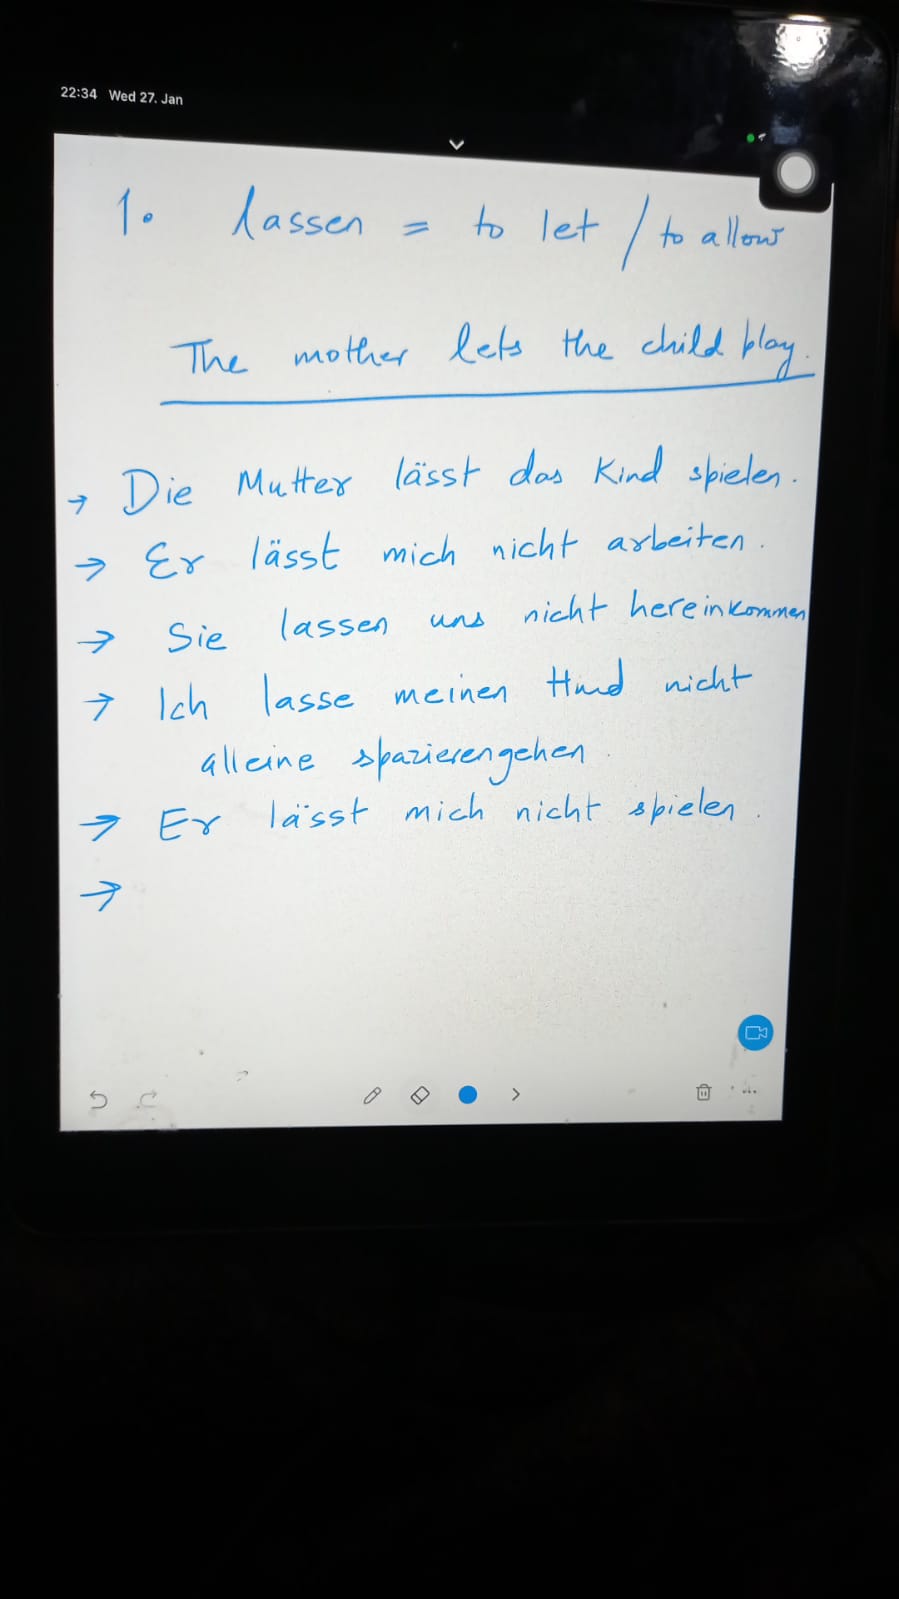 22:34 Wed 27. Jan
1. lassen = to let / to allow
The mother lets the child play.
→ Die Mutter lässt das Kind spielen.
→ Er lässt mich nicht arbeiten.
→ Sie lassen uns nicht hereinkommen
→ Ich lasse meinen Hund nicht
alleine spazierengehen.
→ Er lässt mich nicht spielen.
→